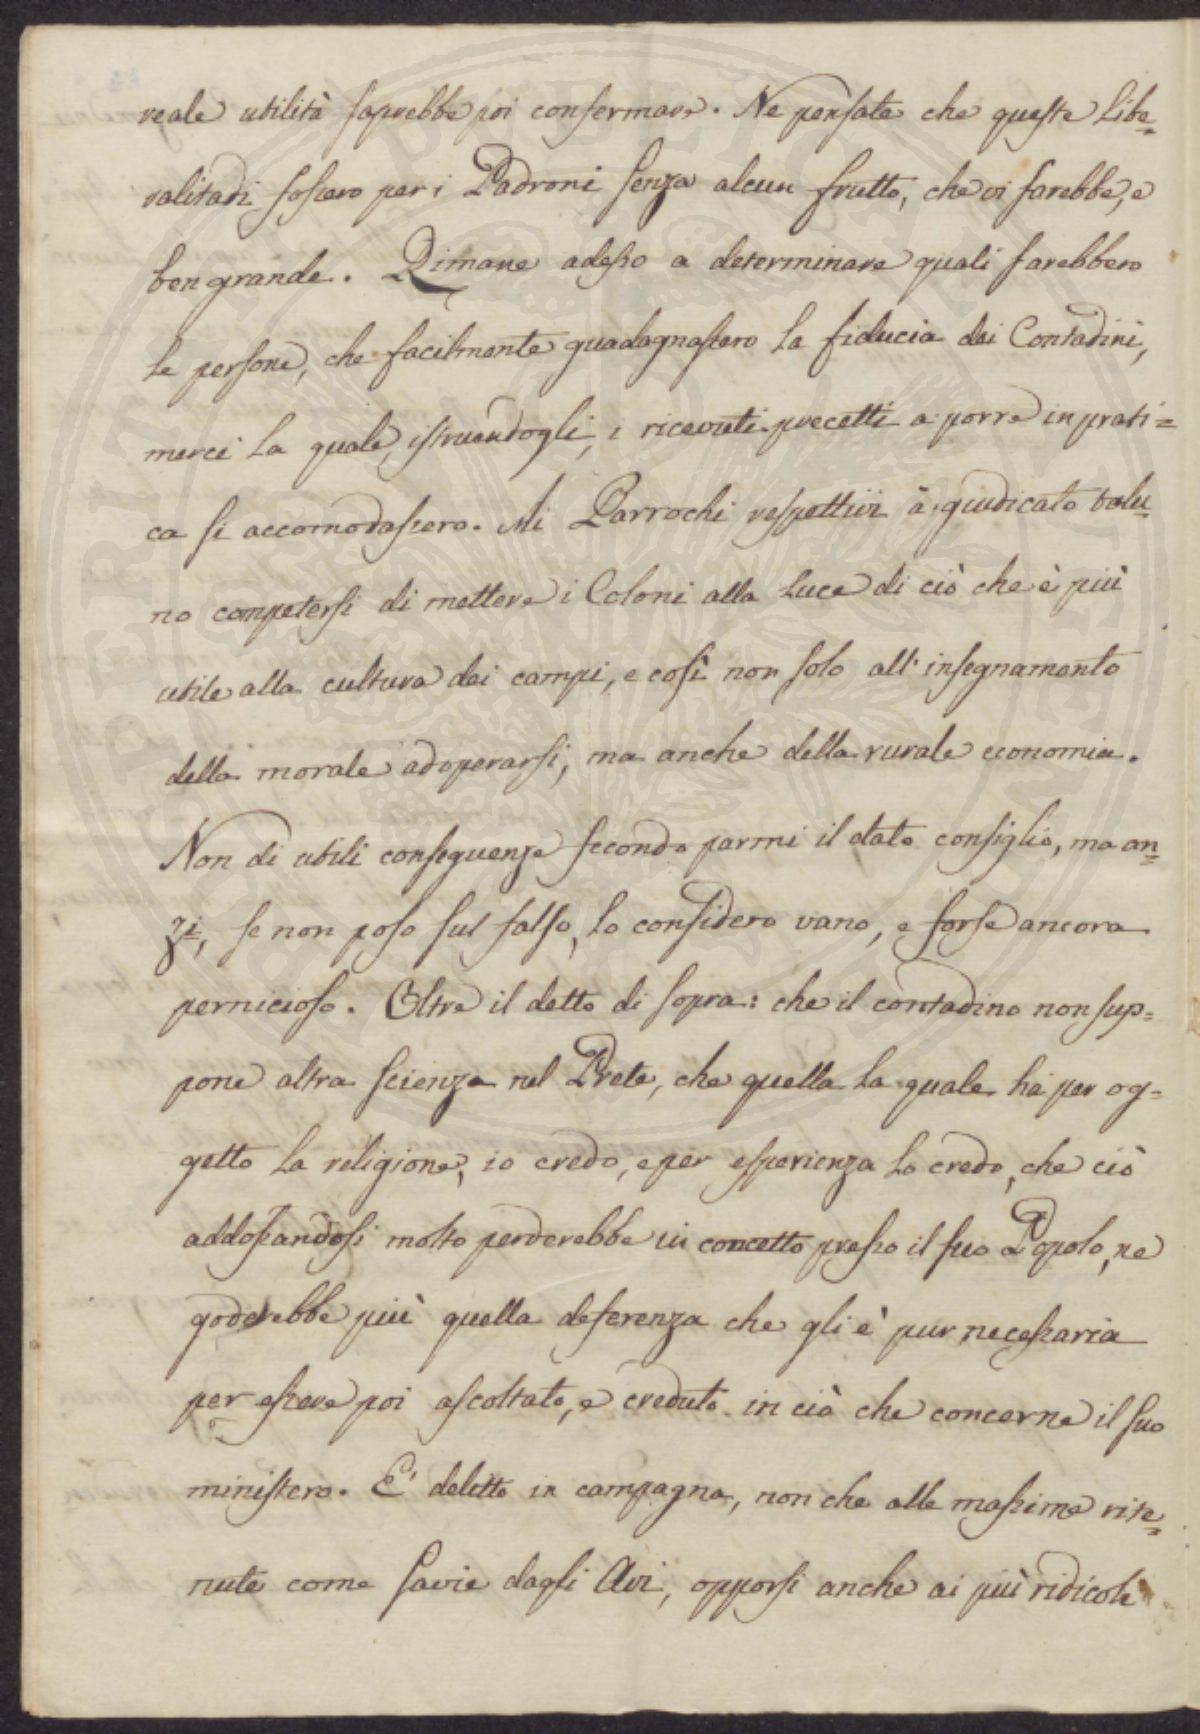 reale utilità saprebbe poi confermare. Ne pensate che queste Libe=
ralitadi fossero per i Padroni senza alcun frutto, che vi sarebbe, e
ben grande. Rimane adesso a determinare quali sarebbero
le persone, che facilmente guadagnassero la fiducia dei Contadini,
mercè la quale, istruendogli, i ricevuti precetti a porre in prati=
ca si accomodassero. Ai Parrochi respettivi à giudicato talu=
no competersi di mettere i Coloni alla luce di ciò che è più
utile alla cultura dei campi, e così non solo all'insegnamento
della morale adoperarsi, ma anche della rurale economia.
Non di utili conseguenze secondo parmi il dato consiglio, ma an=
zi, se non poso sul falso, lo considero vano, e forse ancora
pernicioso. Oltre il detto di sopra: che il contadino non sup=
pone altra scienza nel Prete, che quella la quale ha per og=
getto la religione, io credo, e per esperienza lo credo, che ciò
addossandosi molto perderebbe in concetto presso il suo Popolo, ne
goderebbe più quella deferenza che gli è pur necessaria
per essere poi ascoltato, e creduto in ciò che concerne il suo
ministero. E' delitto in campagna, non che alle massime rite=
nute come savie dagli Avi, opporsi anche ai più ridicoli